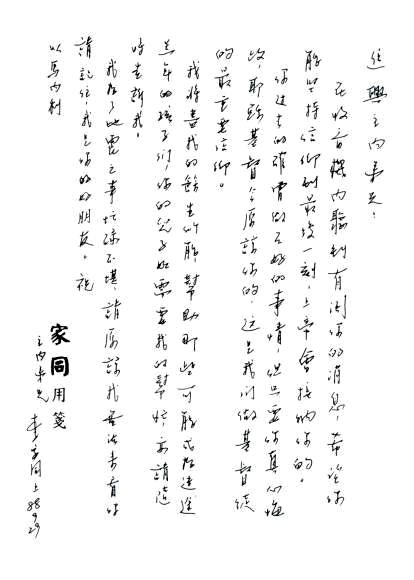 進興主內弟兄：
在收音機內聽到有關你的消息，希望你
能堅持信仰到最後一刻，上帝會接納你的。
你過去的確曾做不好的事情，但只要你真心悔
改，耶穌基督會原諒你的，這是我們做基督徒
的最重要信仰。
我將盡我的餘生所能幫助那些可能成為迷途
青年的孩子們，你的兒子如需要我的幫忙，亦請隨
時告訴我。
我為了地震之事忙碌不堪，請原諒我無法來看你
請記住，我是你的好朋友。祝
以馬內利
家同用箋
主內弟兄 李家同上
88 9 29